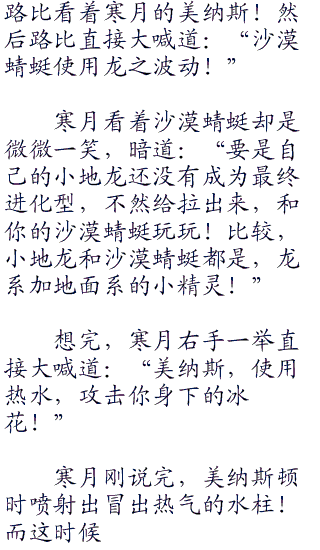 路比看着寒月的美纳斯！然
后路比直接大喊道：“沙漠
蜻蜓使用龙之波动！”
寒月看着沙漠蜻蜓却是
微微一笑，暗道：“要是自
己的小地龙还没有成为最终
进化型，不然给拉出来，和
你的沙漠蜻蜓玩玩！比较，
小地龙和沙漠蜻蜓都是，龙
系加地面系的小精灵！”
想完，寒月右手一举直
接大喊道：“美纳斯，使用
热水，攻击你身下的冰
花！”
寒月刚说完，美纳斯顿
时喷射出冒出热气的水柱！
而这时候